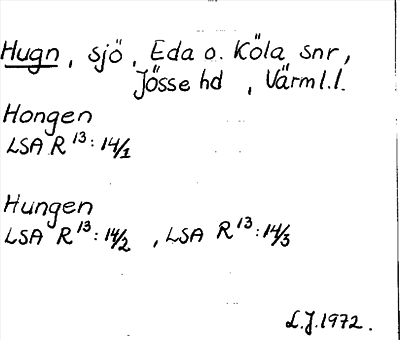 Hugn, sjö, Eda o. Köla snr,
Jösse hd, Värml.l.
Hongen
LSA R 13: 14/1
Hungen
LSA R 13: 14/2, LSA R 13: 14/3
L.J. 1972.